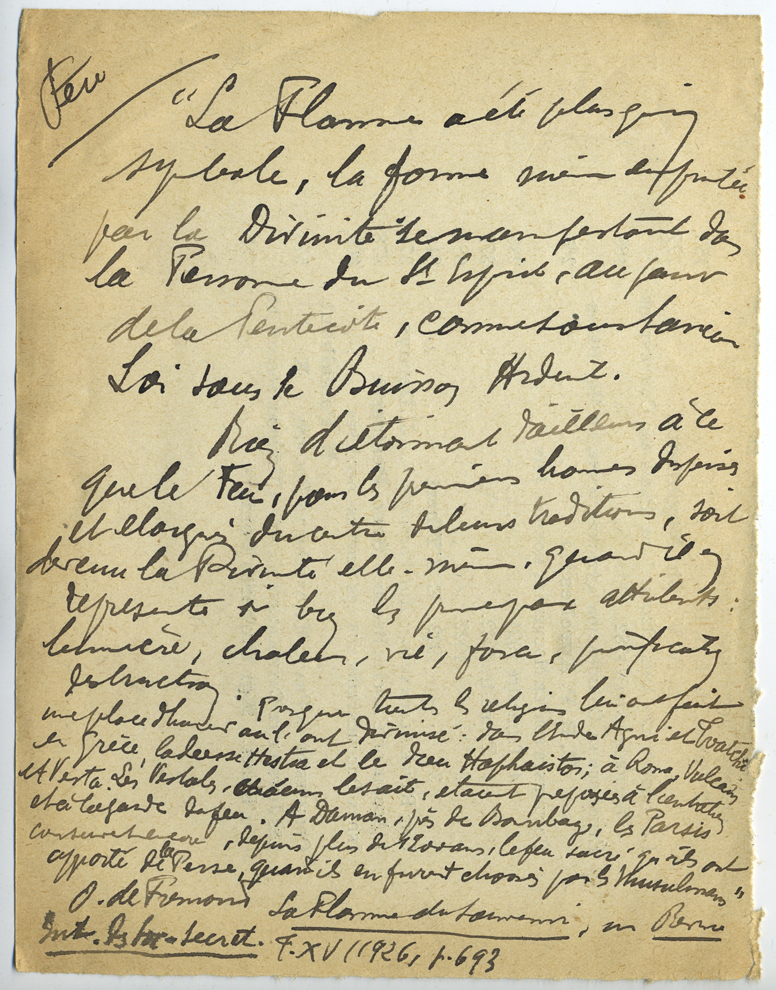 Feu
"La Flamme a été plus qu'un
symbole, la forme même empruntée
par la Divinité se manifestant dans
la Personne du St Esprit, au jour
de la Pentecôte, comme sous l'ancienne
Loi sous le Buisson Ardent.
Rien d'étonnant d'ailleurs à ce
que le Feu, pour les premiers hommes dispersés
et éloignés du centre de leurs traditions, soit
devenu la Divinité elle-même, quand il en
représente si bien les principaux attributs :
lumière, chaleur, vie, force, purification
destruction. Presque toutes les religions lui ont fait
une place d'honneur ou l'ont divinisé : dans l'Inde Agni et
en Grèce, la déesse Hestia et le dieu Hephaistos ; à Rome, Vulcain
et Vesta. Les Vestales, chacun le sait, étaient préposées à l'entretien
et à la garde du feu. A Daman, près de Bombay, les Parsis
conservent encore, depuis plus de 1200 ans, le feu sacré qu'ils ont
apporté de la Perse, quand ils en furent chassés par les Musulmans"
O. de Fremond La Flamme du Souvenir, in Revue
Int. des Soc. Secret. T. XV (1926, p. 693